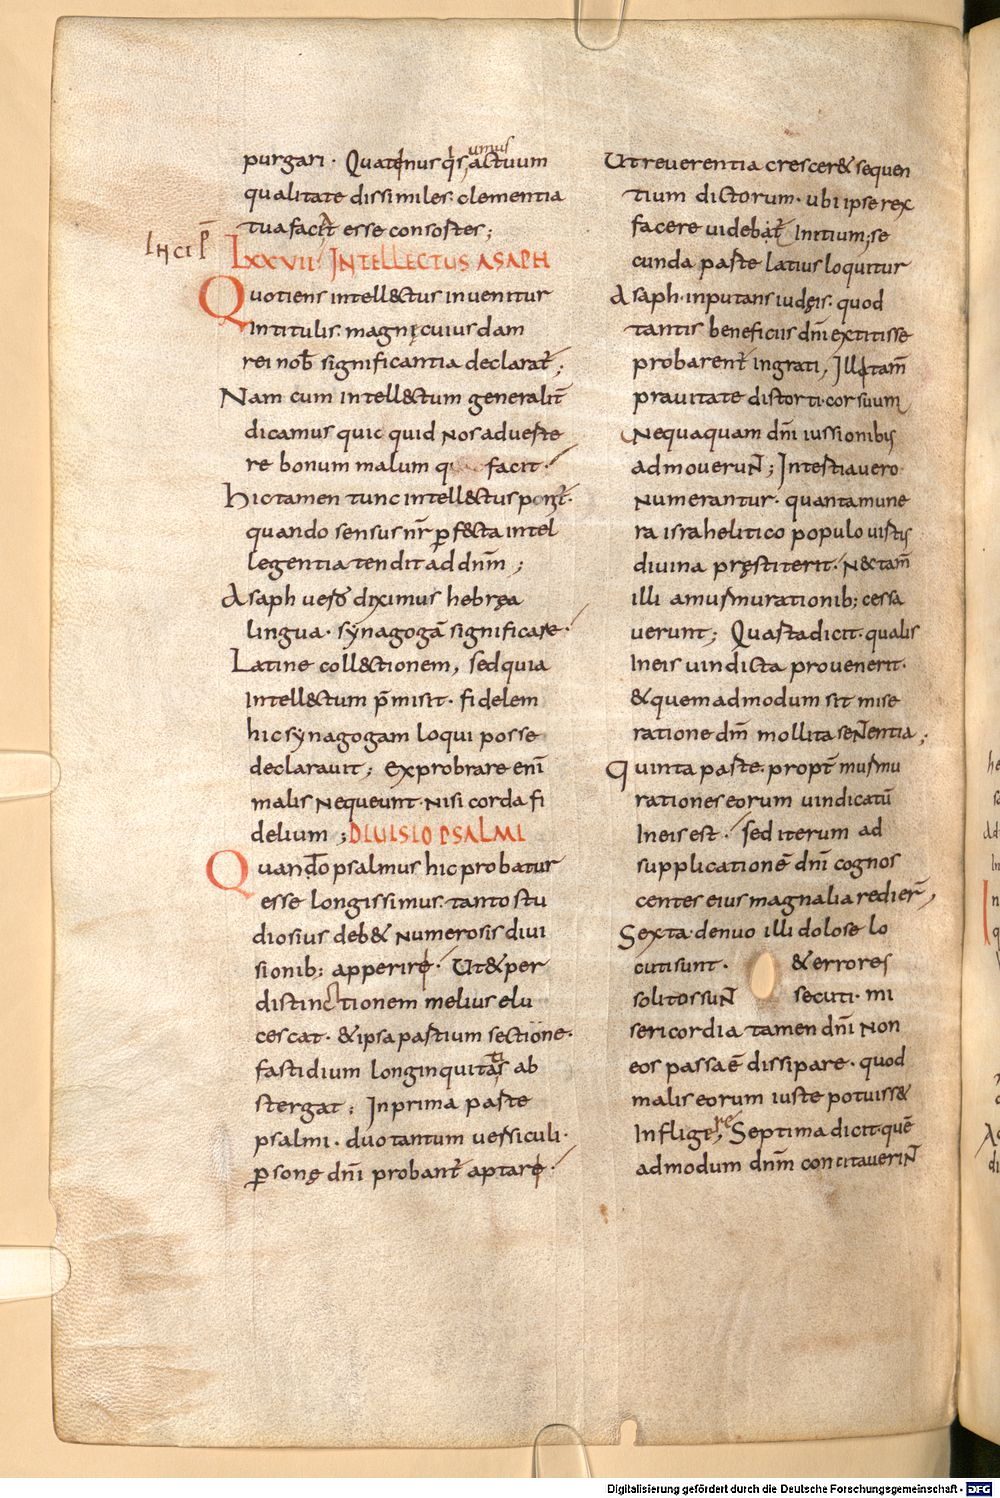 purgari · Quatenus qs actuum
umus
qualitate dissimiles clementia
tua faciat esse consortes ;
Incip
LXXVII INTELLECTUS ASAPH
Quotiens intell&ctus inuenitur
in titulis magnę cuius dam
rei nob significantia declarat̄ ;
Nam cum intell&ctum generalit̄
dicamus quic quid nos aduerte
re bonum malum q facit ·
hic tamen tunc intell&ctus ponit̄ ·
quando sensus nr̄ ꝑf&cta intel
legentia tendit ad dnm̄ ;
Asaph uero diximus hebręa
lingua · synagogā significare ·
Latine coll&ctionem , sed quia
intell&ctum p̄misit · fidelem
hic synagogam loqui posse
declarauit ; Exprobrare enī
malis nequeunt · nisi corda fi
delium ; DIUISIO PSALMI
Quando psalmus hic probatur
esse longissimus · tanto stu
diosius deb& numerosis diui
sionib; apperire · Ut & per
distinctionem melius elu
cescat · & ipsa partium sectione ·
fastidium longinquitatis ab
stergat ; In prima parte
psalmi · duo tantum uersiculi ·
ꝑsonę dnī probant̄ aptare · 
Ut reuerentia crescer& sequen
tium dictorum · ubi ipse rex
facere uidebat̄ initium ; se
cunda parte latius loquitur
Asaph · inputans iudęis · quod
tantis beneficiis dnī extitisse
probarent̄ ingrati , Illi tam̄
prauitate distorti cor suum
Nequaquam dnī iussionibus
admouerun̄ ; In tertia uero
numerantur · quanta mune
ra israhelitico populo uirtus
diuina pręstiterit · N& tam̄
illi a murmurationib; cessa
uerunt ; Quarta dicit · qualis
in eis uindicta prouenerit ·
& quemadmodum sit mise
ratione dnī mollita sen̄entia ;
Quinta parte · propt̄ murmu
rationes eorum uindicatū
in eis est · sed iterum ad
supplicationē dnī cognos
centes eius magnalia redier̄ ,
Sexta · denuo illi dolose lo
cuti sunt · & errores
solitos sun̄ secuti · mi
sericordia tamen dnī non
eos passa ē dissipare · quod
malis eorum iuste potuiss&
infligere , Septima dicit · quē
admodum dnm̄ concitauerin̄
Digitalisierung gefördert durch die Deutsche Forschungsgemeinschaft - DFG